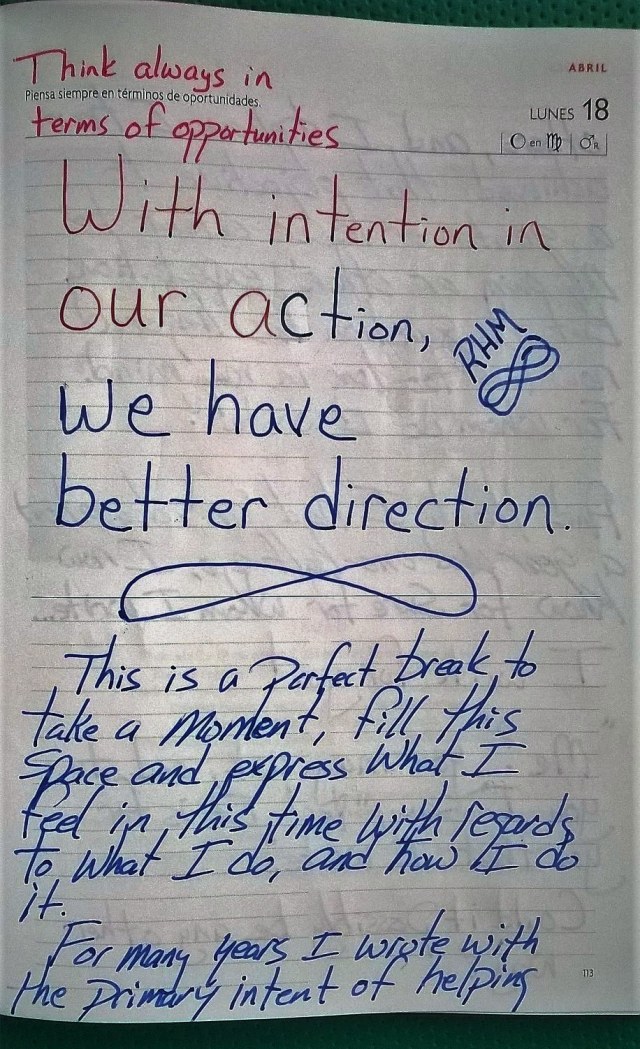 Think always in
ABRIL
Piensa siempre en términos de oportunidades.
LUNES 18
terms of opportunities
en
With intention in
our action,
RHM
we have
better direction.
This is a Perfect break, to
take a Moment, fill this
Space and express What I
feel in this time with regards
to what I do, and how I do
it.
For many years I wrote with
113
the primary intent of helping